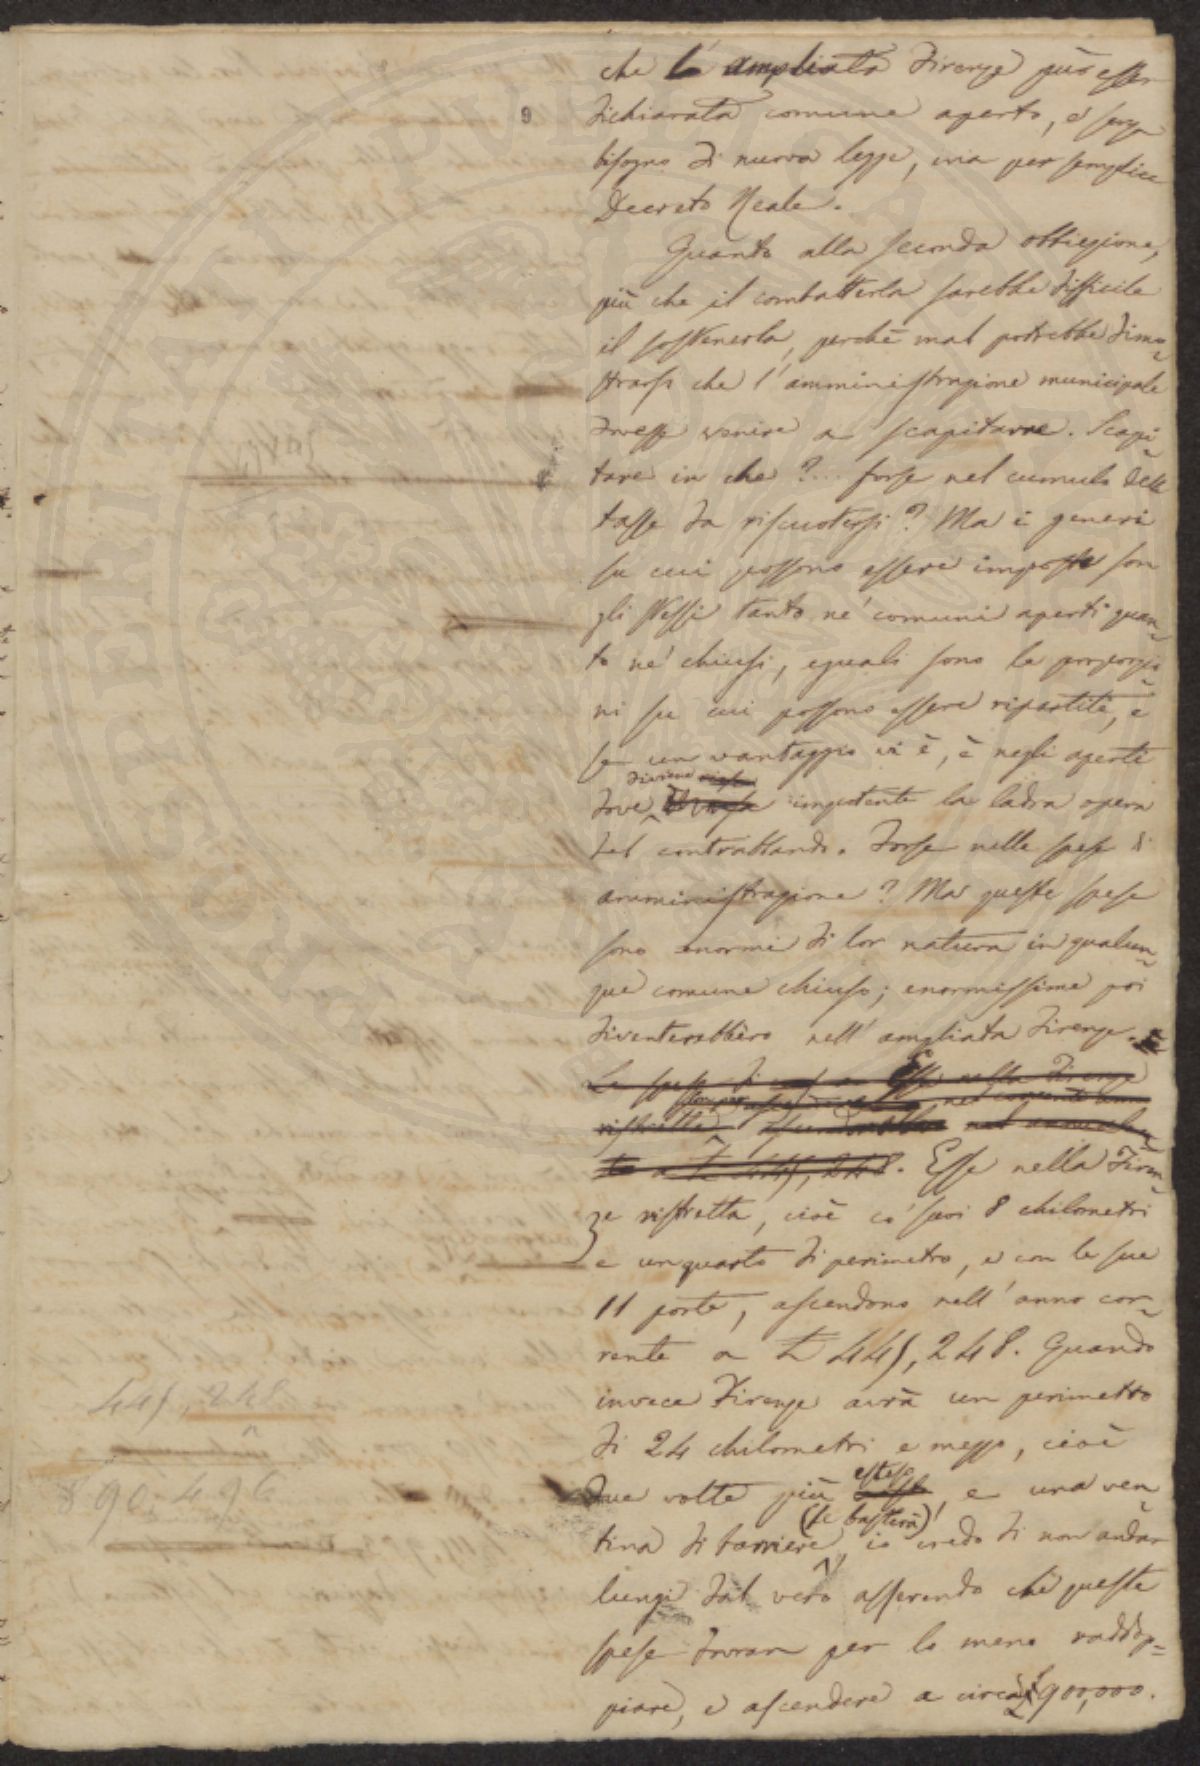 che l'ampliata Firenze può esser
9
dichiarata comune aperto, e senza
bisogno di nuova legge, ma per semplice
Decreto Reale.
Quanto alla seconda obbiezione,
più che il combatterla sarebbe difficile
il sostenerla, perchè mal potrebbe dimo-
strarsi che l'amministrazione municipale
dovesse venire a scapitarne. Scapi-
tare in che?... forse nel cumulo delle
tasse da riscuotersi? Ma i generi
su cui possono essere imposte son
gli stessi tanto ne' comuni aperti quan-
to ne' chiusi, eguali sono le proporzio-
ni su cui possono essere ripartite, e
se un vantaggio vi è, è negli aperti
diviene
dove impotente la ladra opera
del contrabbando. Forse nelle spese di
amministrazione? Ma queste spese
sono enormi di lor natura in qualun-
que comune chiuso; enormissime poi
diventerebbero nell'ampliata Firenze.
Le spese di Esse nella Firenze
ristretta ascenderebbero
to a £ 445,248. Esse nella Firen-
ze ristretta, cioè co' suoi 8 chilometri
e un quarto di perimetro, e con le sue
11 porte, ascendono nell'anno cor-
rente a £ 445,248. Quando
invece Firenze avrà un perimetro
di 24 chilometri e mezzo, cioè
estese
due volte più, e una ven-
(se basterà)
tina di barriere, io credo di non andar
lungi dal vero asserendo che queste
spese dovran per lo meno raddop-
piare, e ascendere a circa £ 900,000.
445,248
890,496